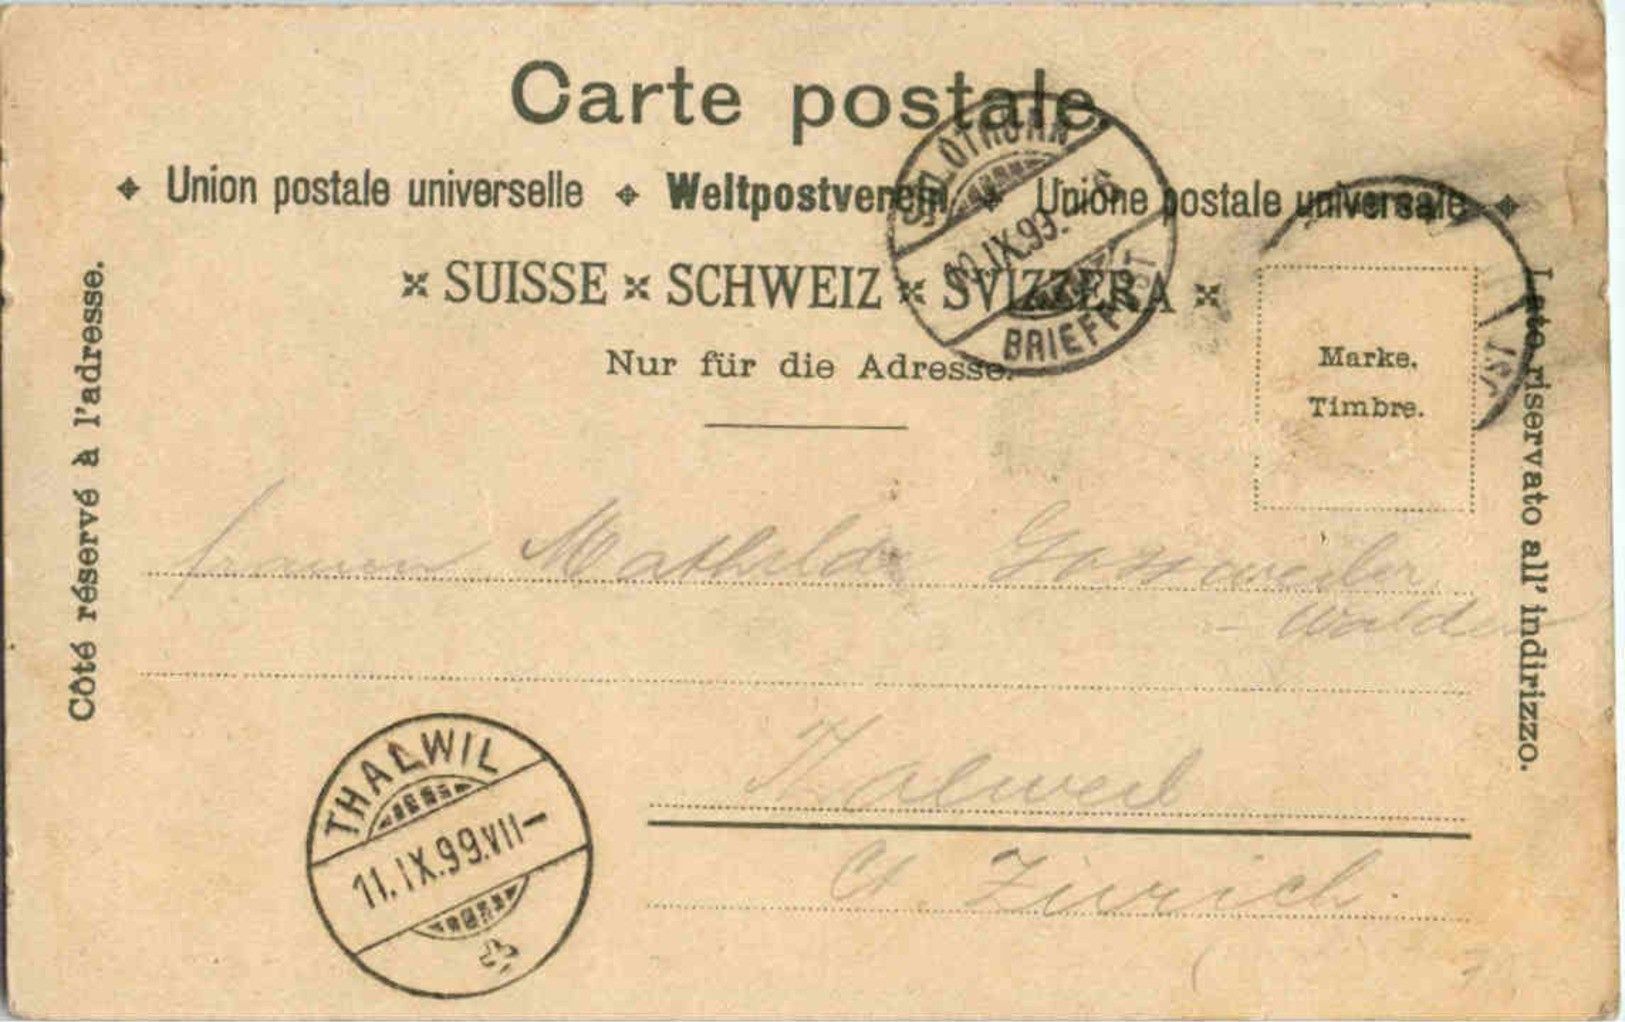 Carte postale.
Union postale universelle Weltpostverein Unione postale universale
SUISSE SCHWEIZ SVIZZERA
Nur für die Adresse.
Côté réservé à l'adresse.
Lato riservato all' indirizzo.
SOLOTHURN
IX.99.
BRIEFPOST
Marke.
Timbre.
Mathilde Gossweiler
Walder
Thalweil
Ct. Zürich.
THALWIL
11.IX.99.VII–